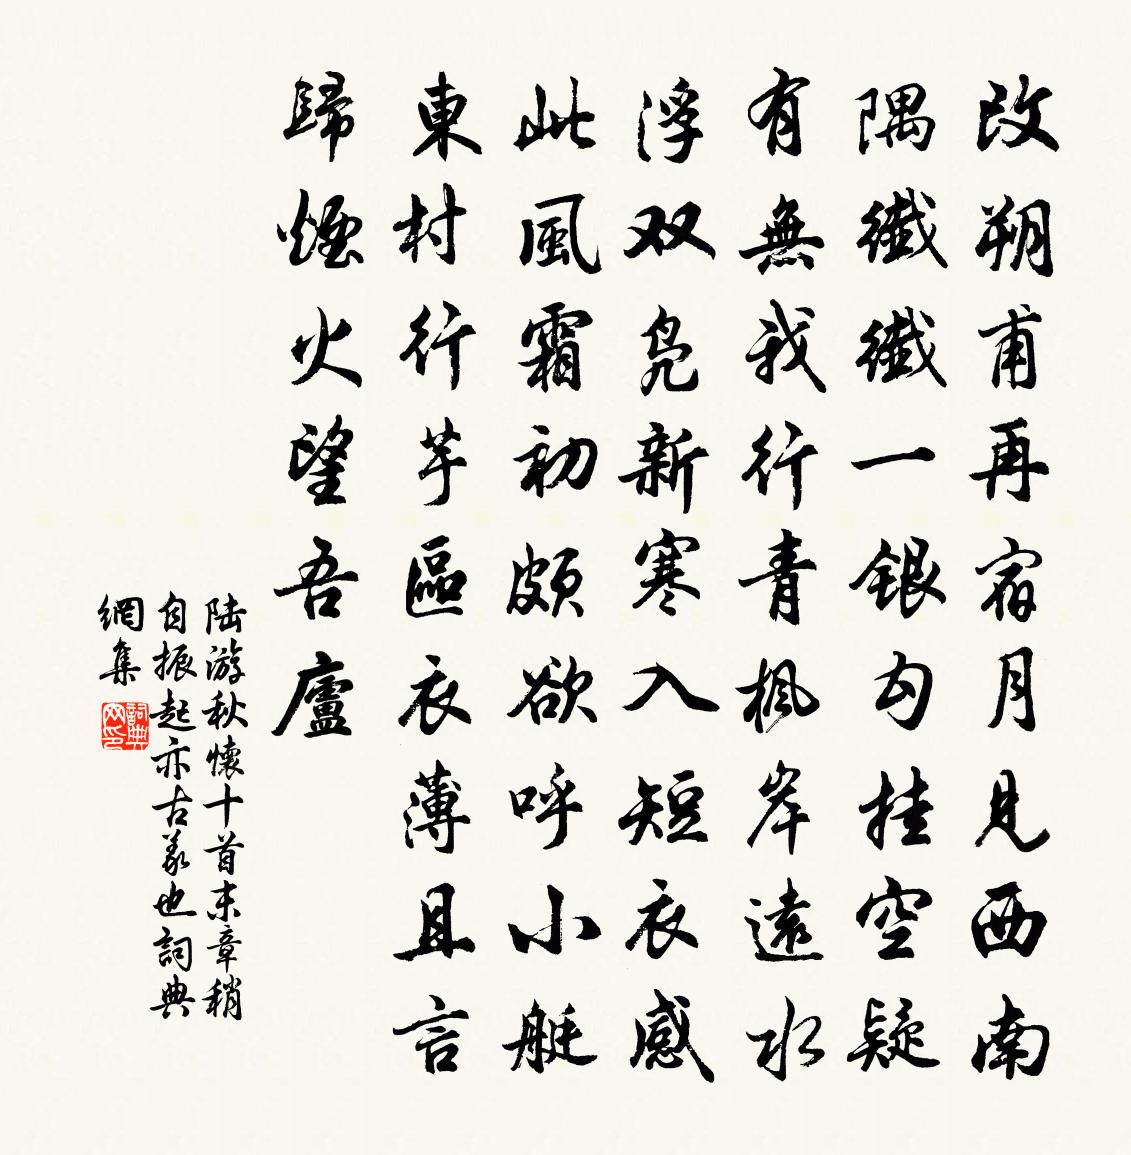 改朔甫再宿月見西南
隅纖纖一銀勾挂空疑
有無我行青楓岸遠水
浮双鳧新寒入短衣感
此風霜初頗欲呼小艇
東村行芋區衣薄且言
歸煙火望吾廬
陆游秋懷十首末章稍
自振起亦古義也詞典
網集
詞典
网印